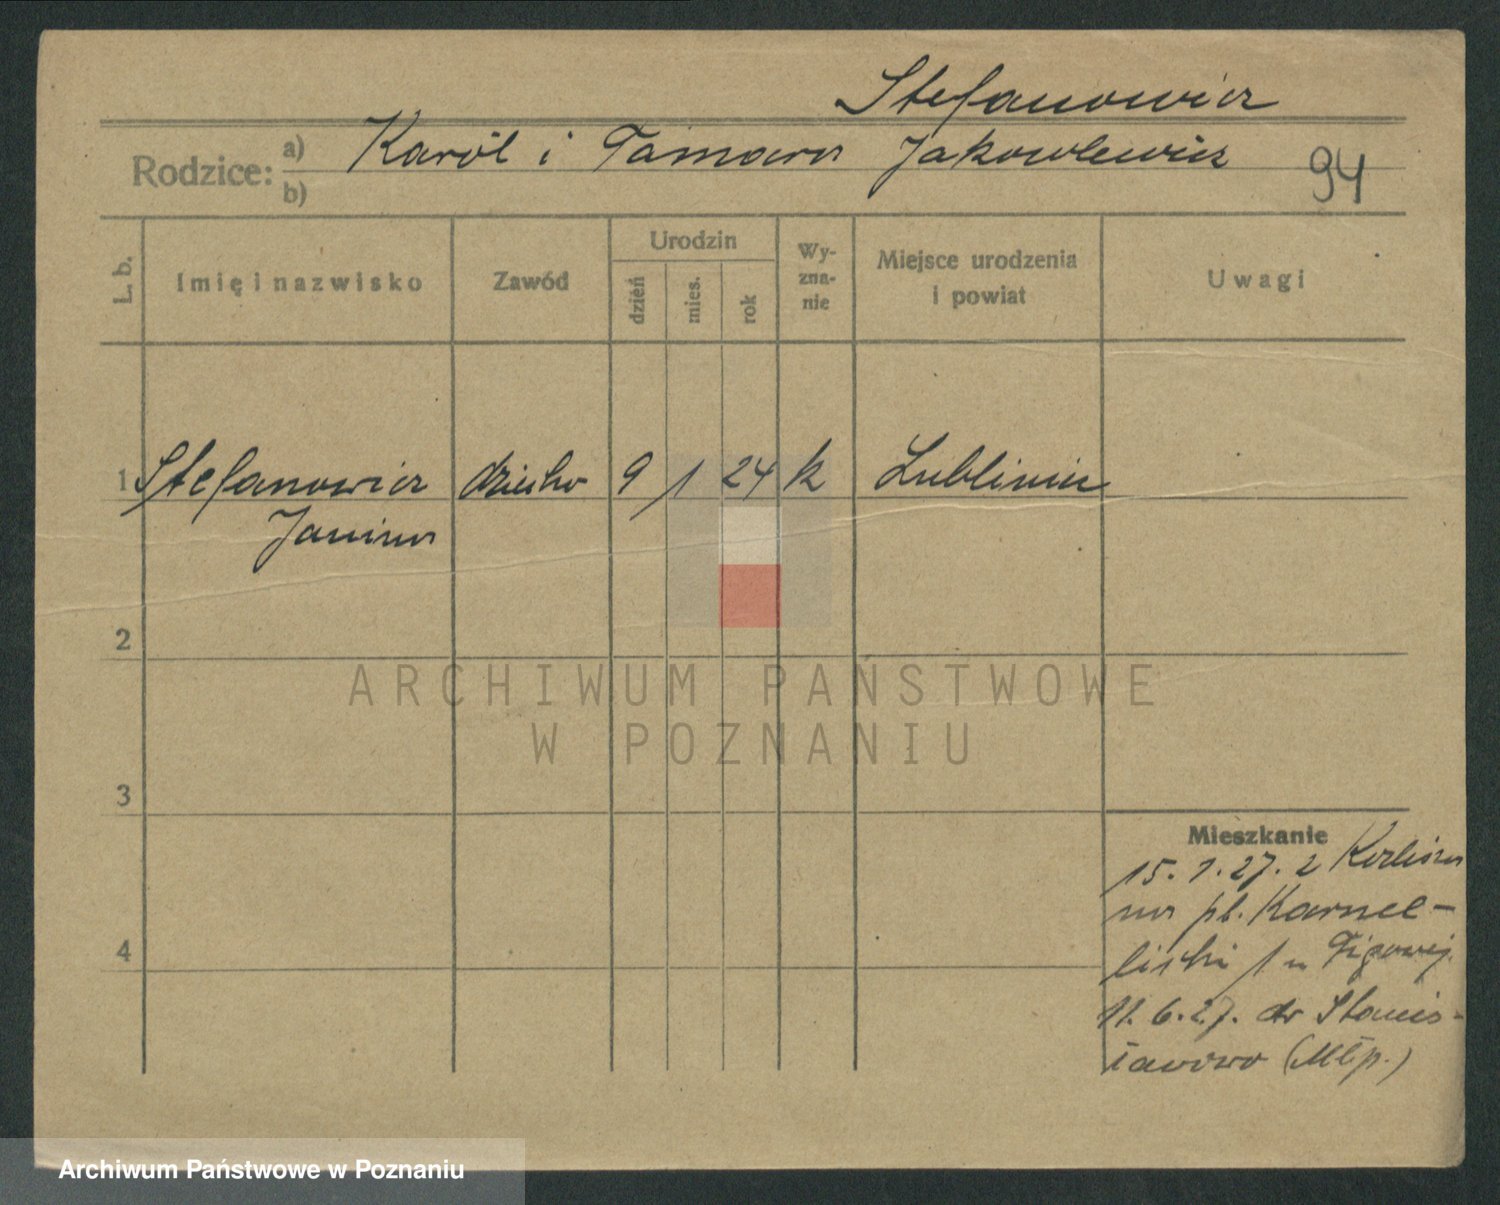 Stefanowicz
Rodzice: a) Karól i Tamara Jakowlewicz
b)
94
L. b.
Imię i nazwisko
Zawód
Urodzin
dzień
mies.
rok
Wy-
zna-
nie
Miejsce urodzenia
i powiat
Uwagi
1 Stefanowicz dziecko 9 1 24 k Lublinie
Janina
2
ARCHIWUM PAŃSTWOWE
W POZNANIU
3
Mieszkanie
15. 1. 27. z
na pl. Karmel-
4
licki 1 u
11. 6. 27. do Stanis-
ławowa (Młp.)
Archiwum Państwowe w Poznaniu